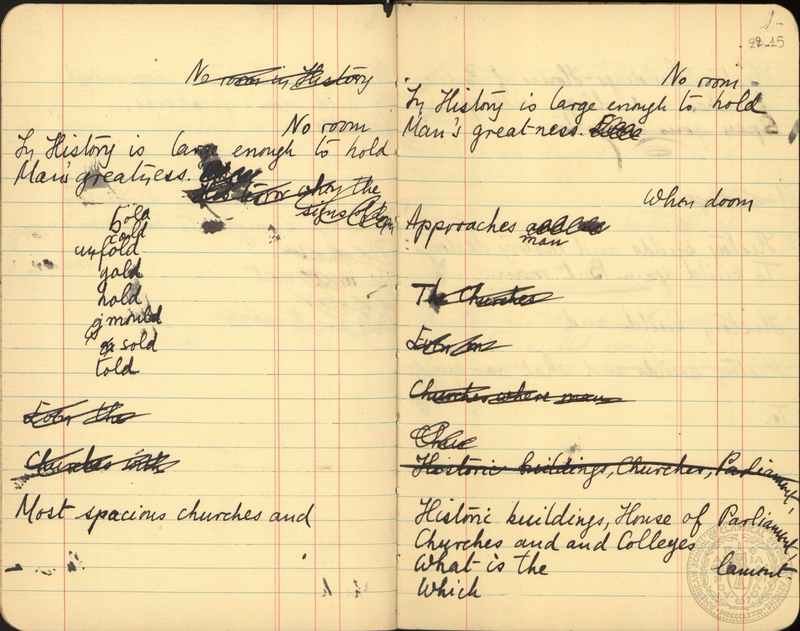 No room in History
No room
In History is large enough to hold
Man's greatness.
the
signs of
bold
cold
unfold
gold
hold
mould
sold
told
Even the
Churches with
Most spacious churches and
1
22-15
No room
In History is large enough to hold
Man's greatness.
When doom
Approaches
man
The Churches
Even
Churches where man
Historic buildings, Churches, Parliament,
Historic buildings, House of Parliament,
Churches and and Colleges
What is the lament.
Which